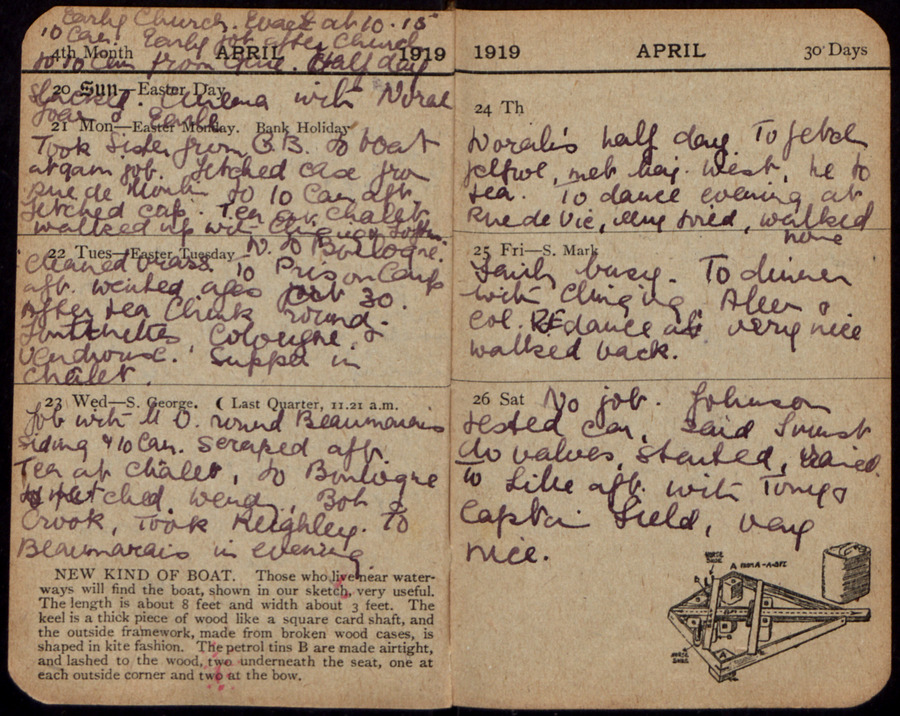 Early Church. Evact at 10.15
10 Can. Early job after Church
4th Month APRIL 1919
to 10 Can from Gare. Half day
20 Sun—Easter Day
Shackles. Cinema with Norah
Joan & Earle
21 Mon—Easter Monday. Bank Holiday
Took Sister from Q.B. to boat
at 9am job. Fetched case from
Rue de Moulin to 10 Can, aft.
fetched cap. Tea at Chalet,
walked up with
22 Tues—Easter Tuesday
N. to Boulogne.
Cleaned brass. 10 Pris on Camp
aft. wented ages
30.
After tea Chink round.
Fontinettes, Cologne &
Vendrome. Supper in
Chalet.
23 Wed—S. George. ☾ Last Quarter, 11.21 a.m.
Job with M O. round Beaumarais
siding & 10 Can. Scraped aft.
Tea at Chalet, to Boulogne
fetched Wend, Bob &
Crook, Took Keighley. To
Beaumarais in evening
NEW KIND OF BOAT. Those who live near water-
ways will find the boat, shown in our sketch, very useful.
The length is about 8 feet and width about 3 feet. The
keel is a thick piece of wood like a square card shaft, and
the outside framework, made from broken wood cases, is
shaped in kite fashion. The petrol tins B are made airtight,
and lashed to the wood, two underneath the seat, one at
each outside corner and two at the bow.
1919 APRIL 30 Days
24 Th
Norah's half day. To fetch
petrol, met Maj. West, he to
tea. To dance evening at
Rue de Vic, very tired, walked
home
25 Fri—S. Mark
Fairly busy. To dinner
with Clinging Allen &
Col. RE dance aft very nice
walked back.
26 Sat No job. Johnson
tested car, said I must
do valves, started, rained.
to Lille aft. with Tony &
Captain Field, very
nice.